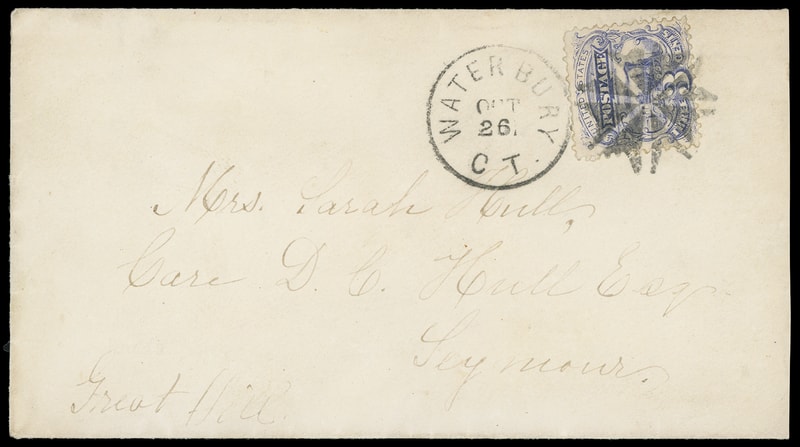 WATERBURY
OCT
26.
CT.
UNITED STATES
POSTAGE
3
Mrs. Sarah Hull,
Care D. C. Hull Esq
Seymour.
Great Hill